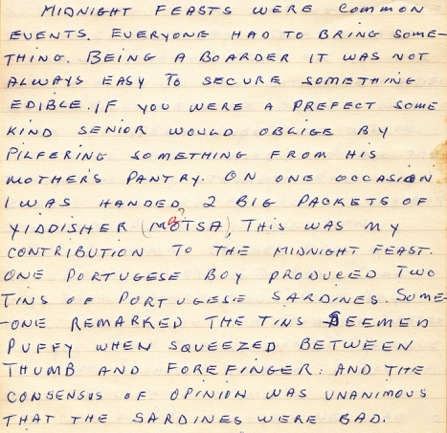 MIDNIGHT FEASTS WERE COMMON
EVENTS. EVERYONE HAD TO BRING SOME-
THING. BEING A BOARDER IT WAS NOT
ALWAYS EASY TO SECURE SOMETHING
EDIBLE. IF YOU WERE A PREFECT SOME
KIND SENIOR WOULD OBLIGE BY
PILFERING SOMETHING FROM HIS
MOTHER'S PANTRY. ON ONE OCCASION
I WAS HANDED 2 BIG PACKETS OF
YIDDISHER (MOTSA), THIS WAS MY
CONTRIBUTION TO THE MIDNIGHT FEAST.
ONE PORTUGESE BOY PRODUCED TWO
TINS OF PORTUGESE SARDINES. SOME-
-ONE REMARKED THE TINS SEEMED
PUFFY WHEN SQUEEZED BETWEEN
THUMB AND FOREFINGER: AND THE
CONSENSUS OF OPINION WAS UNANIMOUS
THAT THE SARDINES WERE BAD.